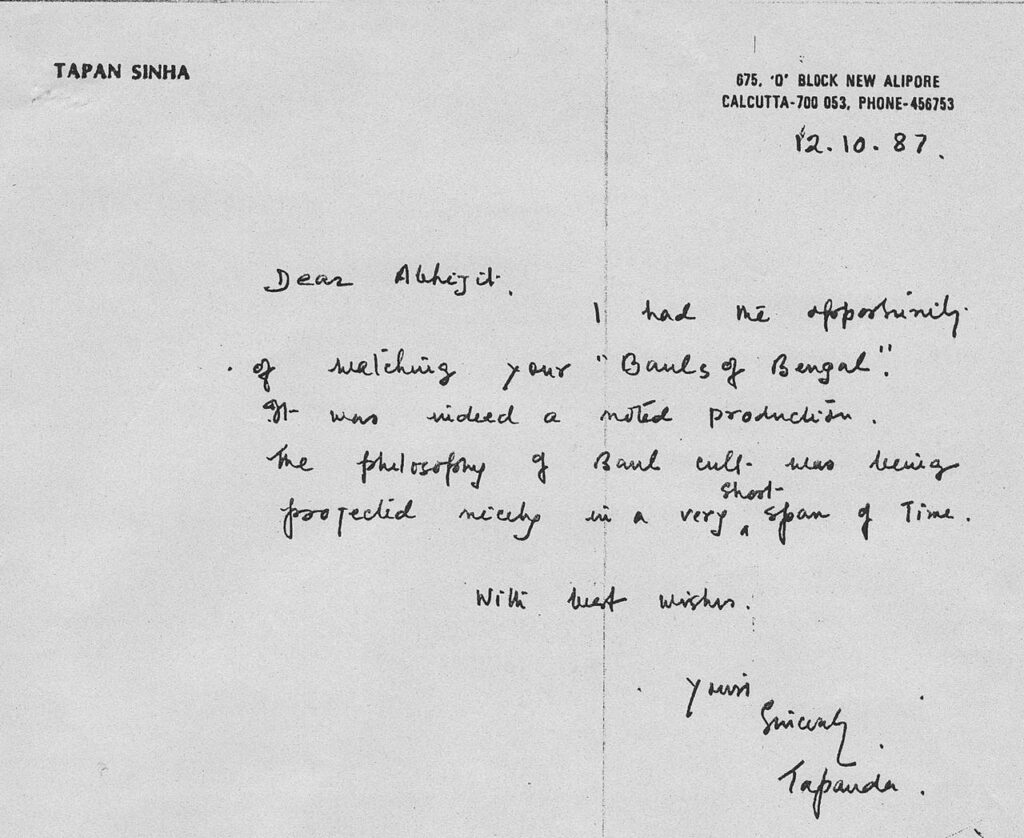 TAPAN SINHA
675, 'O' BLOCK NEW ALIPORE
CALCUTTA-700 053, PHONE-456753
12.10.87.
Dear Abhijit,
I had the opportunity
of watching your "Bauls of Bengal".
It was indeed a noted production.
The philosophy of Baul cult was being
projected nicely in a very short span of Time.
With best wishes.
Yours
Sincerely
Tapanda.